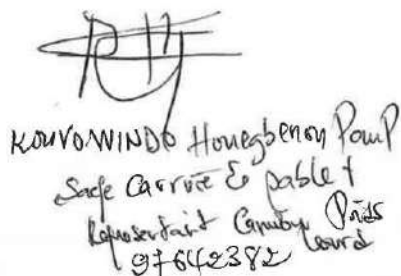 KOUVOWINDO Houegbenon Paul
Sage Carrière & sable +
Représentant Camion Poids
Lourd
97642382